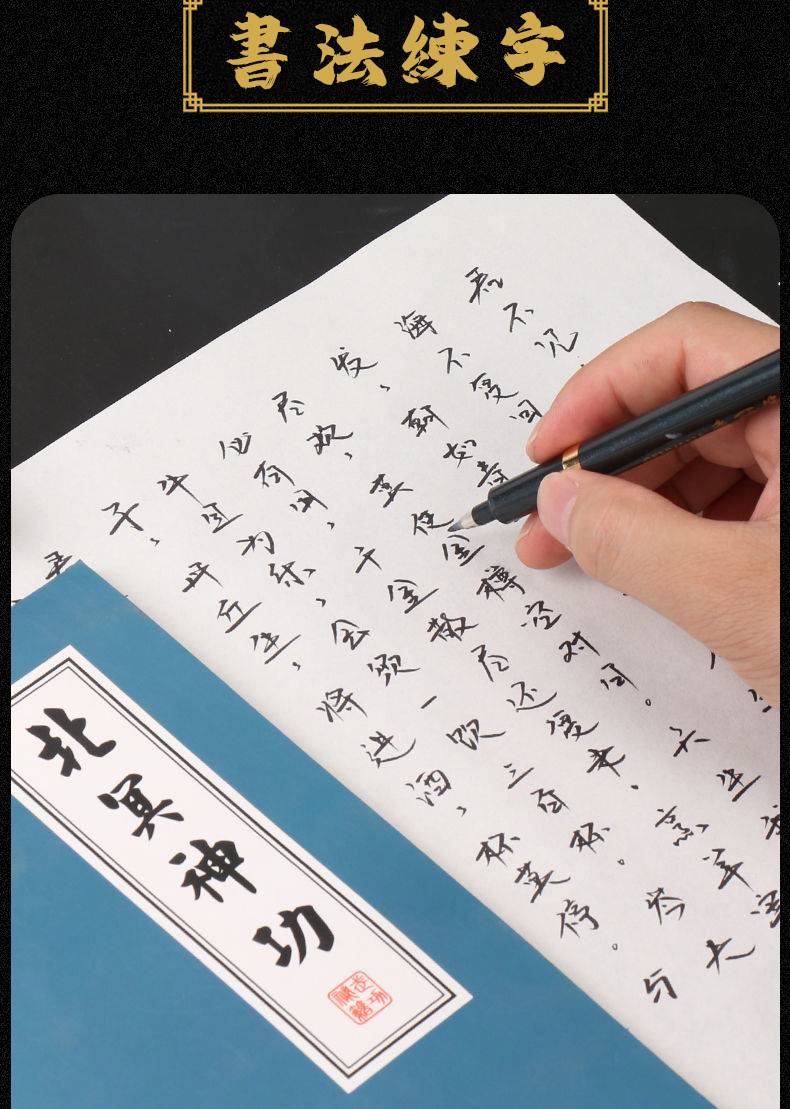 書法練字
君不见
海不复回
发，朝如青
尽欢，莫使金樽空对月。天生
必有用，千金散尽还复来。烹羊宰
牛且为乐，会须一饮三百杯。岑夫
子，丹丘生，将进酒，杯莫停。与
君
北冥神功